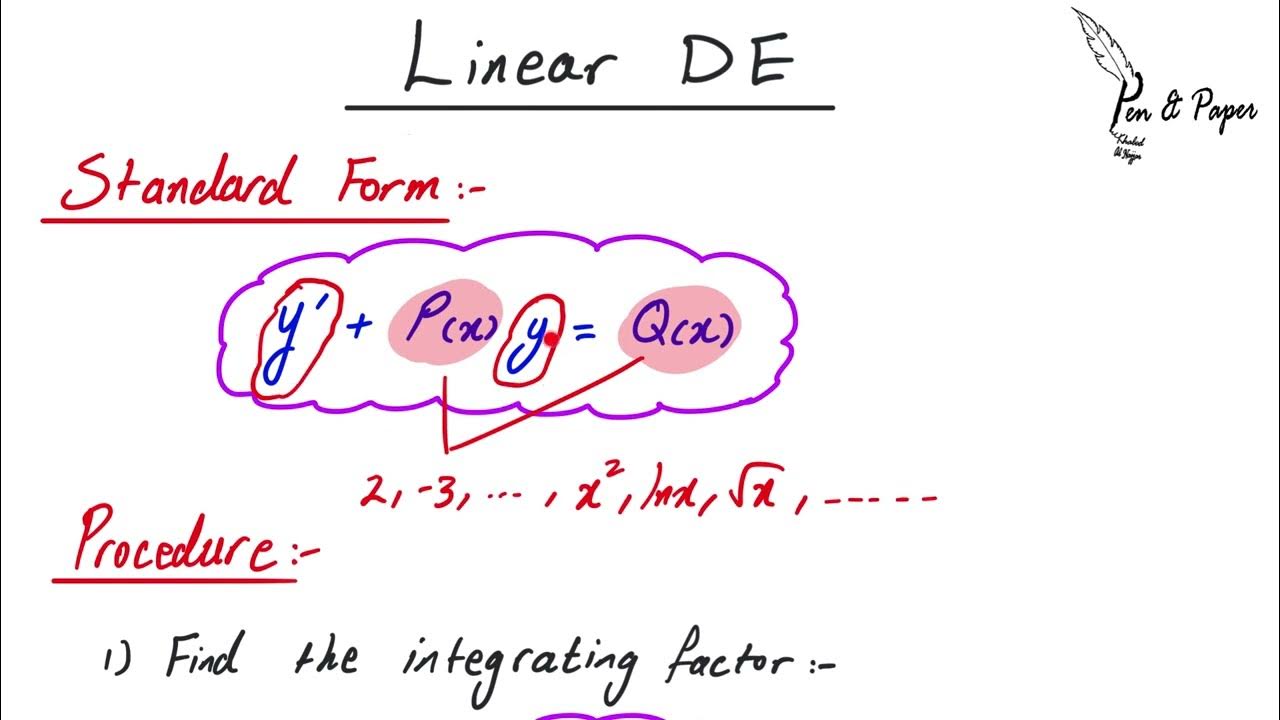 Linear DE
Pen & Paper
Khaled
Al Najjar
Standard Form:-
y' + P(x) y = Q(x)
2, -3, ... , x², lnx, √x , -----
Procedure:-
1) Find the integrating factor:-